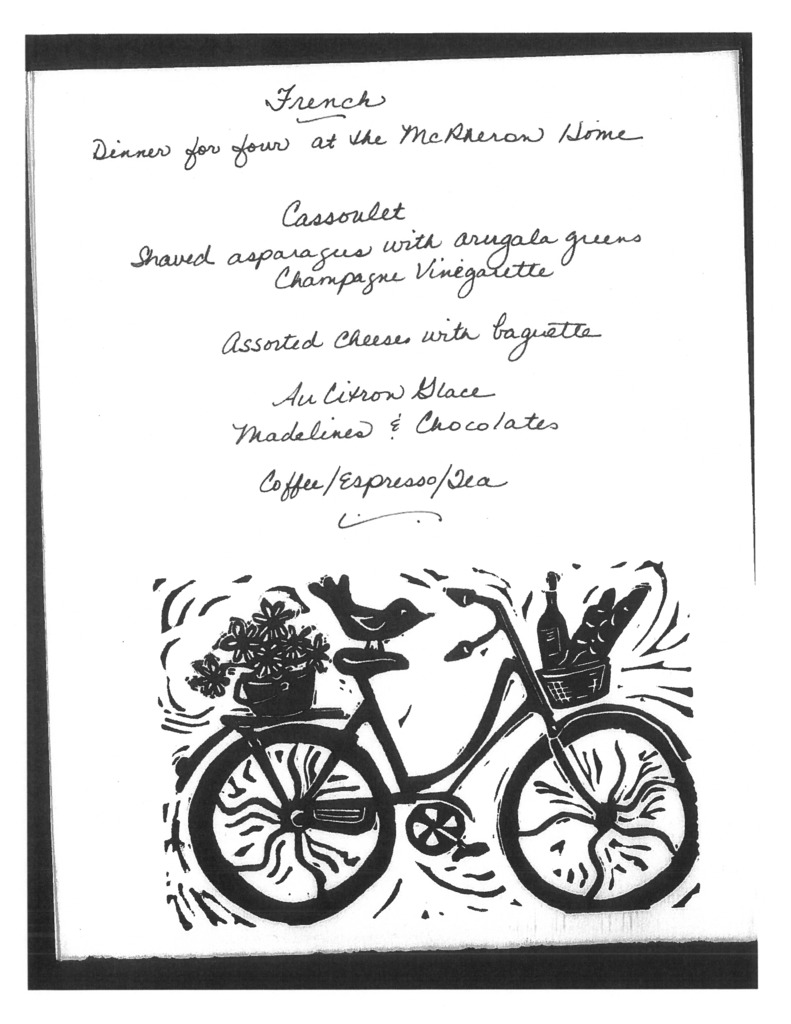 French
Dinner for four at the McPheron Home
Cassoulet
Shaved asparagus with arugala greens
Champagne Vinegarette
Assorted Cheeses with baguette
Au Citron Glace
Madelines & Chocolates
Coffee/Espresso/Tea